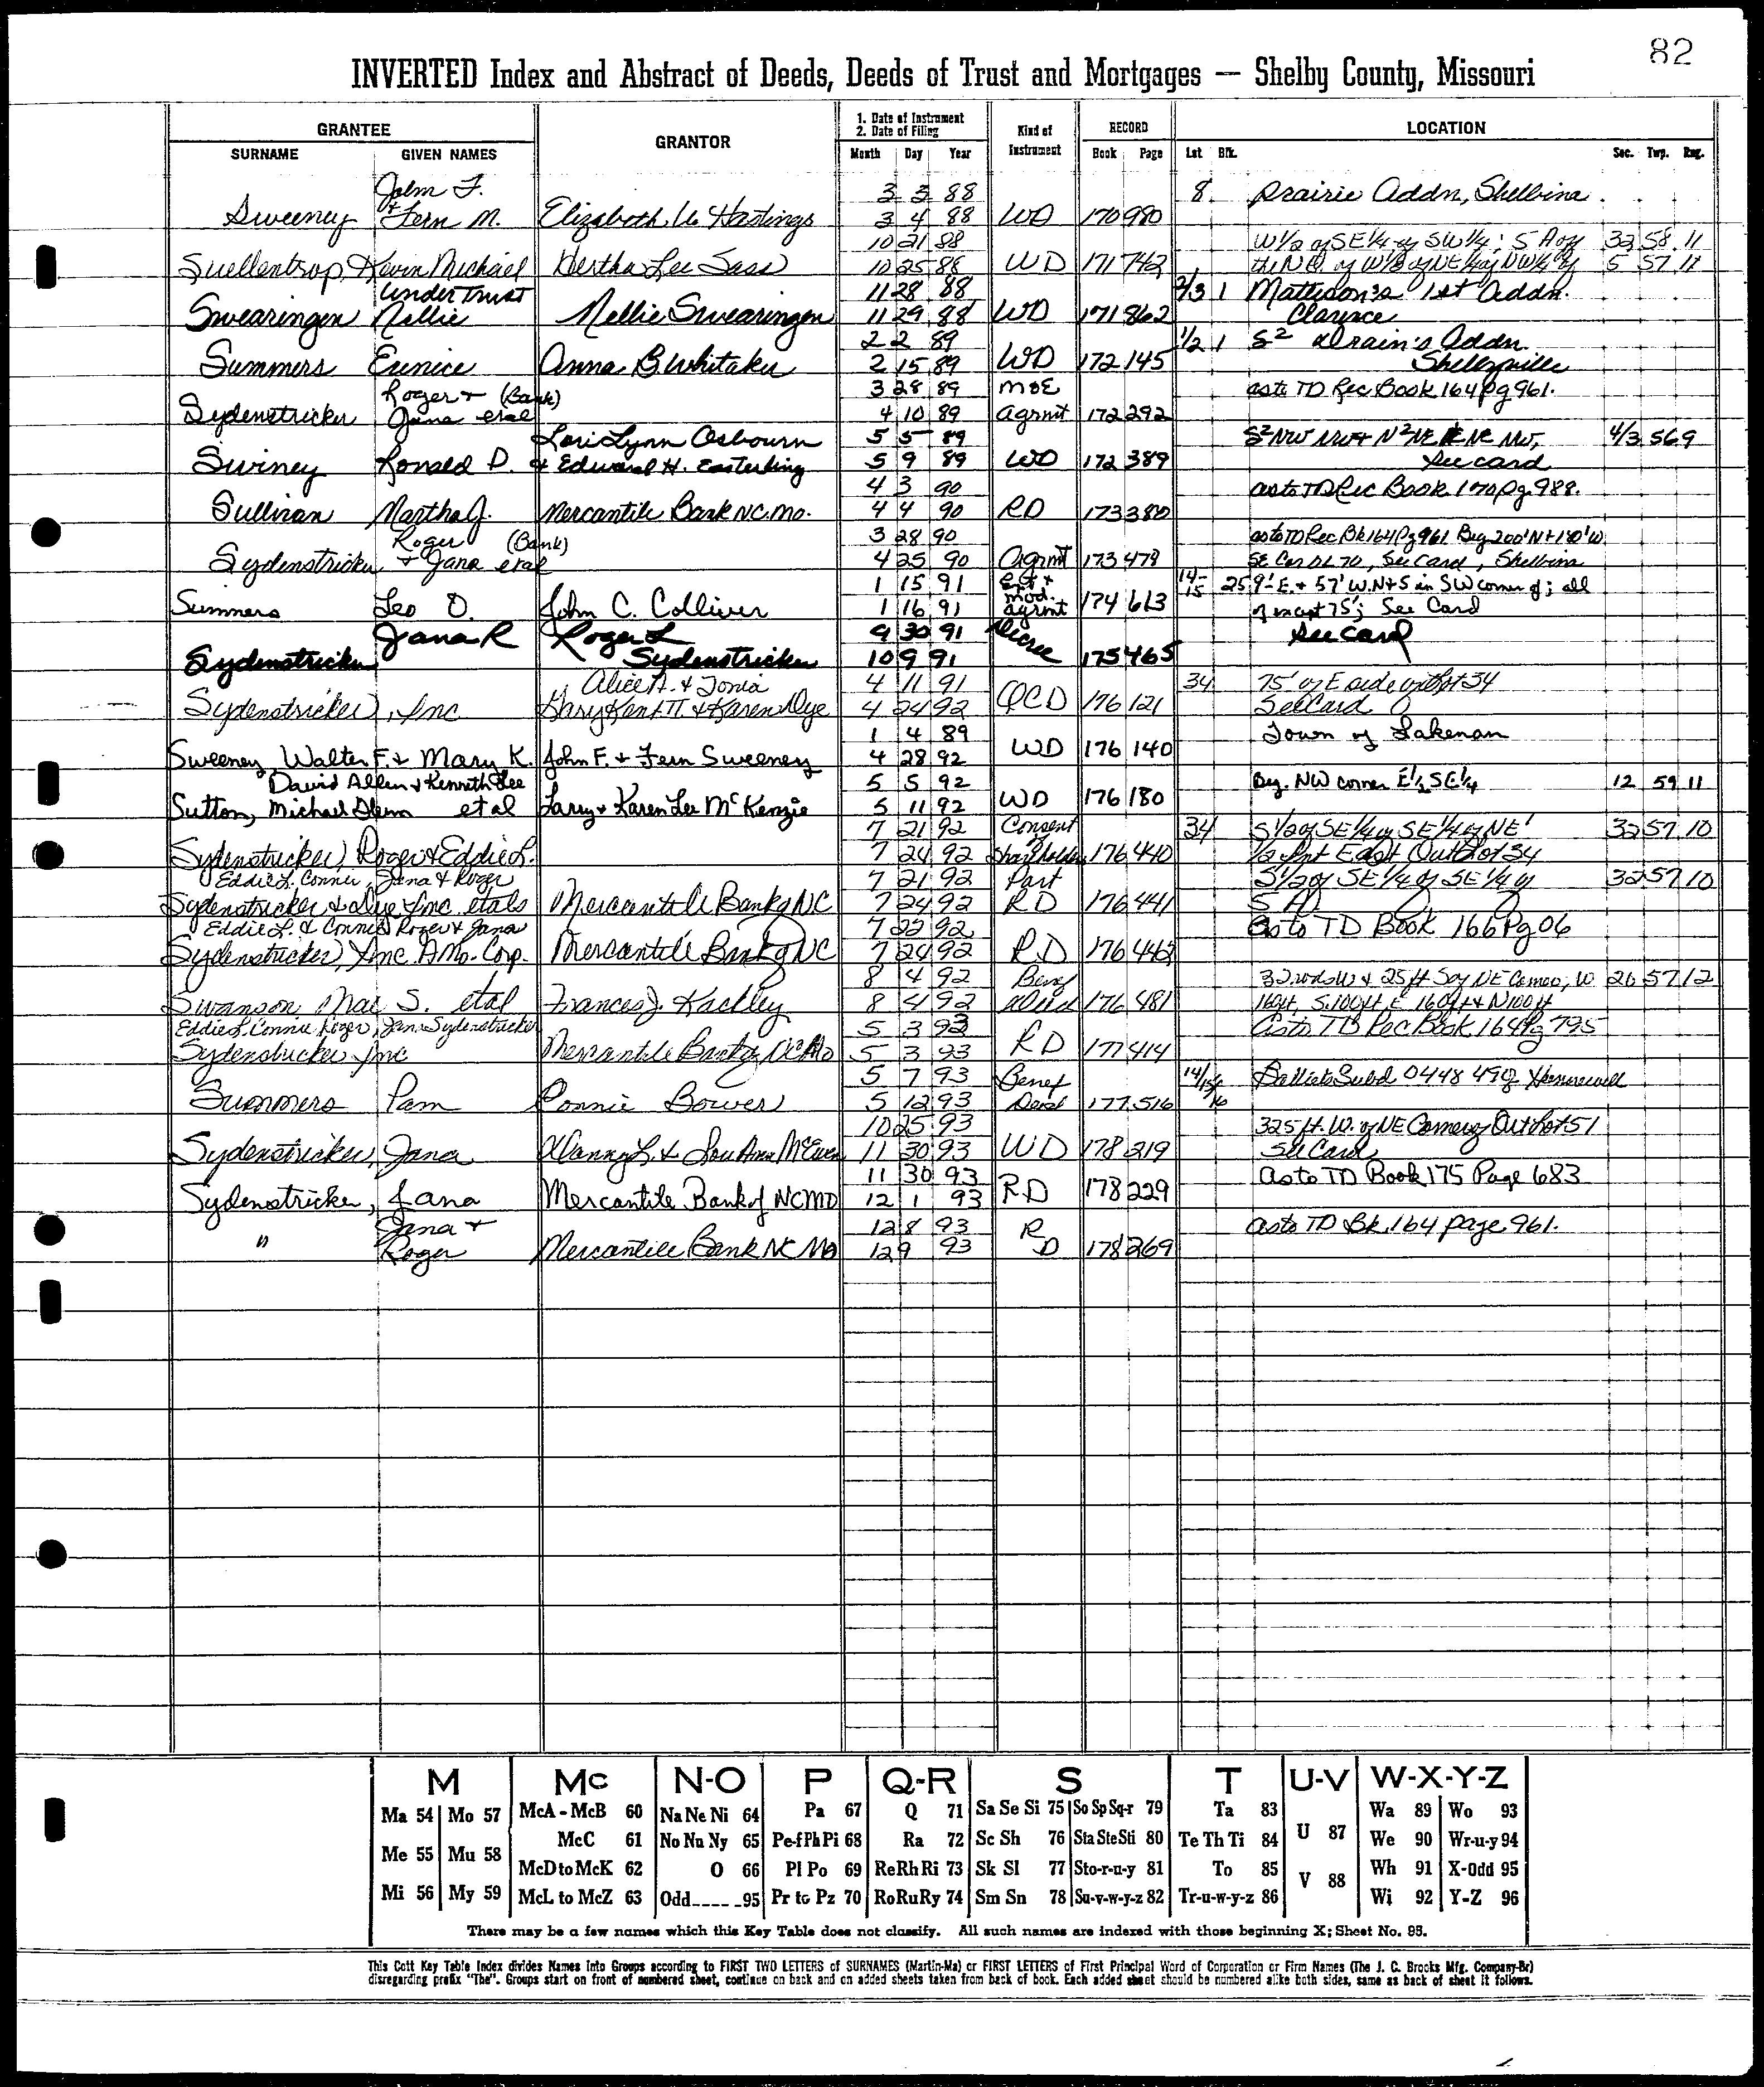 82
INVERTED Index and Abstract of Deeds, Deeds of Trust and Mortgages — Shelby County, Missouri
GRANTEE GRANTOR 1. Date of Instrument 2. Date of Filing Kind of Instrument RECORD LOCATION
SURNAME GIVEN NAMES Month Day Year Book Page Lot Blk. Sec. Twp. Rng.
John F. 3 3 88 8 Prairie Addn, Shelbina
Sweeney & Fern M. Elizabeth U. Hastings 3 4 88 WD 170 980
10 21 88 W1/2 of SE1/4 of SW1/4; 5 A of 32 58 11
Suellentrop, Kevin Michael Hertha Lee Sass 10 25 88 WD 171 762 the N of W1/2 of NE1/4 of NW1/4 of 5 57 11
Under Trust 11 28 88 2/3 1 Mattison's 1st Addn.
Swearingen Nellie Nellie Swearingen 11 29 88 WD 171 862 Clarence
2 2 89 1/2 1 S2 Drain's Addn.
Summers Eunice Anna B Whitaker 2 15 89 WD 172 145 Shelbyville
Roger & (Bank) 3 28 89 MOE as to TD Rec Book 164 Pg 961.
Sydenstricker Jana etal 4 10 89 agrmt 172 292
Lori Lynn Osbourn 5 5 89 S2 NW NW & N2 NE NE NW, 4/3 56 9
Swiney Ronald D. & Edward H. Easterling 5 9 89 WD 172 389 See card
4 3 90 as to TD Rec Book 170 Pg 988.
Sullivan Martha J. Mercantile Bank NC. Mo. 4 4 90 RD 173 380
Roger (Bank) 3 28 90 as to TD Rec Bk 164 Pg 961 Beg 200' N & 180' W
Sydenstricker & Jana etal 4 25 90 Agrmt 173 478 SE Cor OL 70, See Card, Shelbina
1 15 91 Ext & mod. 14-15 259' E. & 57' W. N&S in SW corner of; all
Summers Leo O. John C. Colliver 1 16 91 agrmt 174 613 of except 75'; See Card
Jana R Roger L 9 30 91 Decree See Card
Sydenstricker Sydenstricker 10 9 91 175 465
Alice A. & Tonia 4 11 91 34 75' of E side outlot 34
Sydenstricker, Inc Gary Kent II & Karen Dye 4 24 92 QCD 176 121 See Card
1 4 89 Town of Lakenan
Sweeney, Walter F. & Mary K. John F. & Fern Sweeney 4 28 92 WD 176 140
David Allen & Kenneth Lee 5 5 92 Beg. NW corner E1/2 SE1/4 12 59 11
Sutton, Michael Glenn etal Larry & Karen Lee McKenzie 5 11 92 WD 176 180
7 21 92 Consent of 34 S1/2 of SE1/4 of SE1/4 of NE' 32 57 10
Sydenstricker, Roger & Eddie L. 7 24 92 Shareholders 176 440 Outlot 34
Eddie L. Connie, Jana & Roger 7 21 92 Part S1/2 of SE1/4 of SE1/4 of 32 57 10
Sydenstricker & Dye Inc. etals Mercantile Bank of NC 7 24 92 RD 176 441 5 A
Eddie L. & Connie Roger & Jana 7 22 92 As to TD Book 166 Pg 06
Sydenstricker, Inc. A Mo. Corp. Mercantile Bank of NC 7 24 92 RD 176 442
8 4 92 Benef 32 rods W & 25 ft S of NE Corner, W 26 57 12
Swanson, Mae S. etal Frances J. Kackley 8 4 92 Deed 176 481 160ft, S. 100ft, E 160ft & N 100ft
Eddie L. Connie Roger, Jana Sydenstricker 5 3 93 As to TD Rec Book 164 Pg 795
Sydenstricker Inc Mercantile Bank of NC Mo 5 3 93 RD 177 414
5 7 93 Benef 14/15/16 Subd 0448 49 of Hunnewell
Summers Pam Ronnie Bower 5 12 93 Deed 177 516
10 25 93 325 ft. W. of NE Corner of Outlot 51
Sydenstricker, Jana Danny L. & Lou Ann McEwen 11 30 93 WD 178 219 See Card
11 30 93 As to TD Book 175 Page 683
Sydenstricker, Jana Mercantile Bank of NCMO 12 1 93 RD 178 229
Jana & 12 8 93 as to TD Bk. 164 page 961.
" Roger Mercantile Bank NC Mo 12 9 93 RD 178 269
M Mc N-O P Q-R S T U-V W-X-Y-Z
Ma 54 Mo 57 McA - McB 60 Na Ne Ni 64 Pa 67 Q 71 Sa Se Si 75 So Sp Sq-r 79 Ta 83 Wa 89 Wo 93
McC 61 No Nu Ny 65 Pe-f Ph Pi 68 Ra 72 Sc Sh 76 Sta Ste Sti 80 Te Th Ti 84 U 87 We 90 Wr-u-y 94
Me 55 Mu 58 McD to McK 62 O 66 Pl Po 69 Re Rh Ri 73 Sk Sl 77 Sto-r-u-y 81 To 85 V 88 Wh 91 X-Odd 95
Mi 56 My 59 McL to McZ 63 Odd_____95 Pr to Pz 70 Ro Ru Ry 74 Sm Sn 78 Su-v-w-y-z 82 Tr-u-w-y-z 86 Wi 92 Y-Z 96
There may be a few names which this Key Table does not classify. All such names are indexed with those beginning X; Sheet No. 95.
This Cott Key Table Index divides Names Into Groups according to FIRST TWO LETTERS of SURNAMES (Martin-Ma) or FIRST LETTERS of First Principal Word of Corporation or Firm Names (The J. C. Brooks Mfg. Company-Br)
disregarding prefix "The". Groups start on front of numbered sheet, continue on back and on added sheets taken from back of book. Each added sheet should be numbered alike both sides, same as back of sheet it follows.